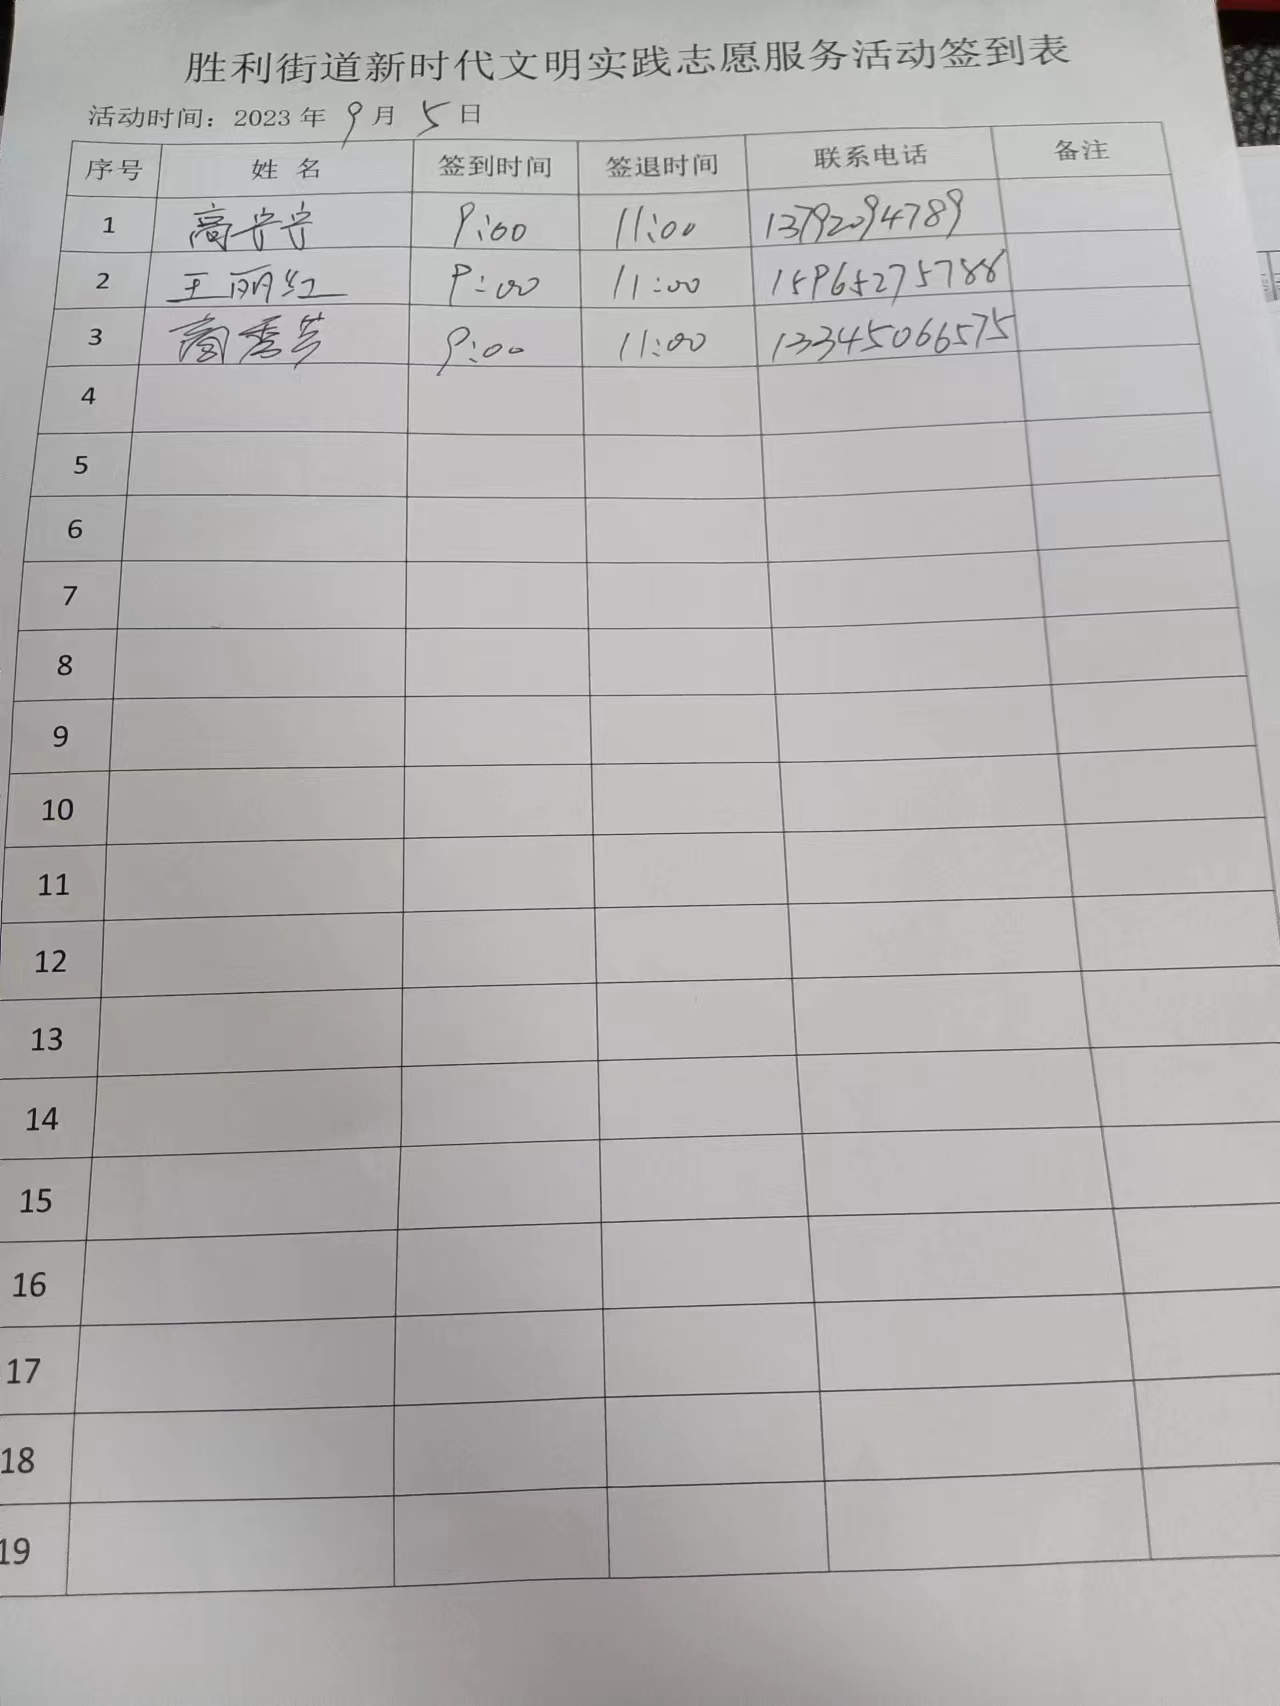 胜利街道新时代文明实践志愿服务活动签到表
活动时间：2023 年 9 月 5 日
序号 姓 名 签到时间 签退时间 联系电话 备注
1 高安安 9:00 11:00 13792094789
2 王丽红 9:00 11:00 15965275788
3 高秀芳 9:00 11:00 13345066575
4
5
6
7
8
9
10
11
12
13
14
15
16
17
18
19